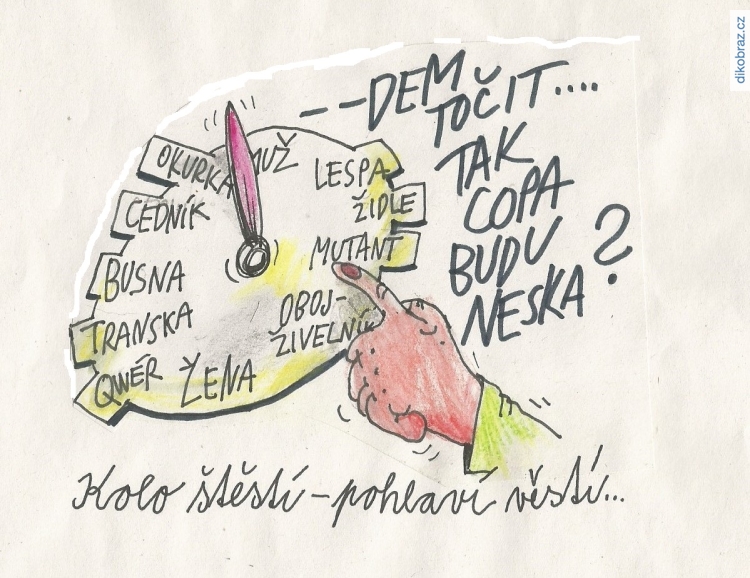 dikobraz.cz
--DEM
TOČIT....
TAK
COPA
BUDU
NESKA?
OKURKA
MUŽ
LESPA
ŽIDLE
CEDNÍK
MUTANT
BUSNA
OBOJ-
ŽIVELNÍK
TRANSKA
QWÉR
ŽENA
Kolo štěstí – pohlaví věstí...